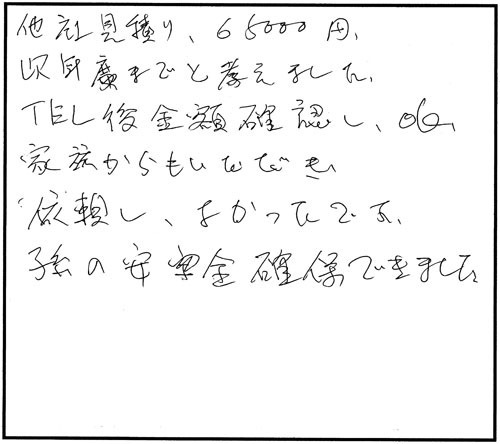 他社見積り、65000円、
までと考えました、
TEL後金額確認し、OK、
家族からもいただき、
依頼し、よかったです、
孫の安全確保できました